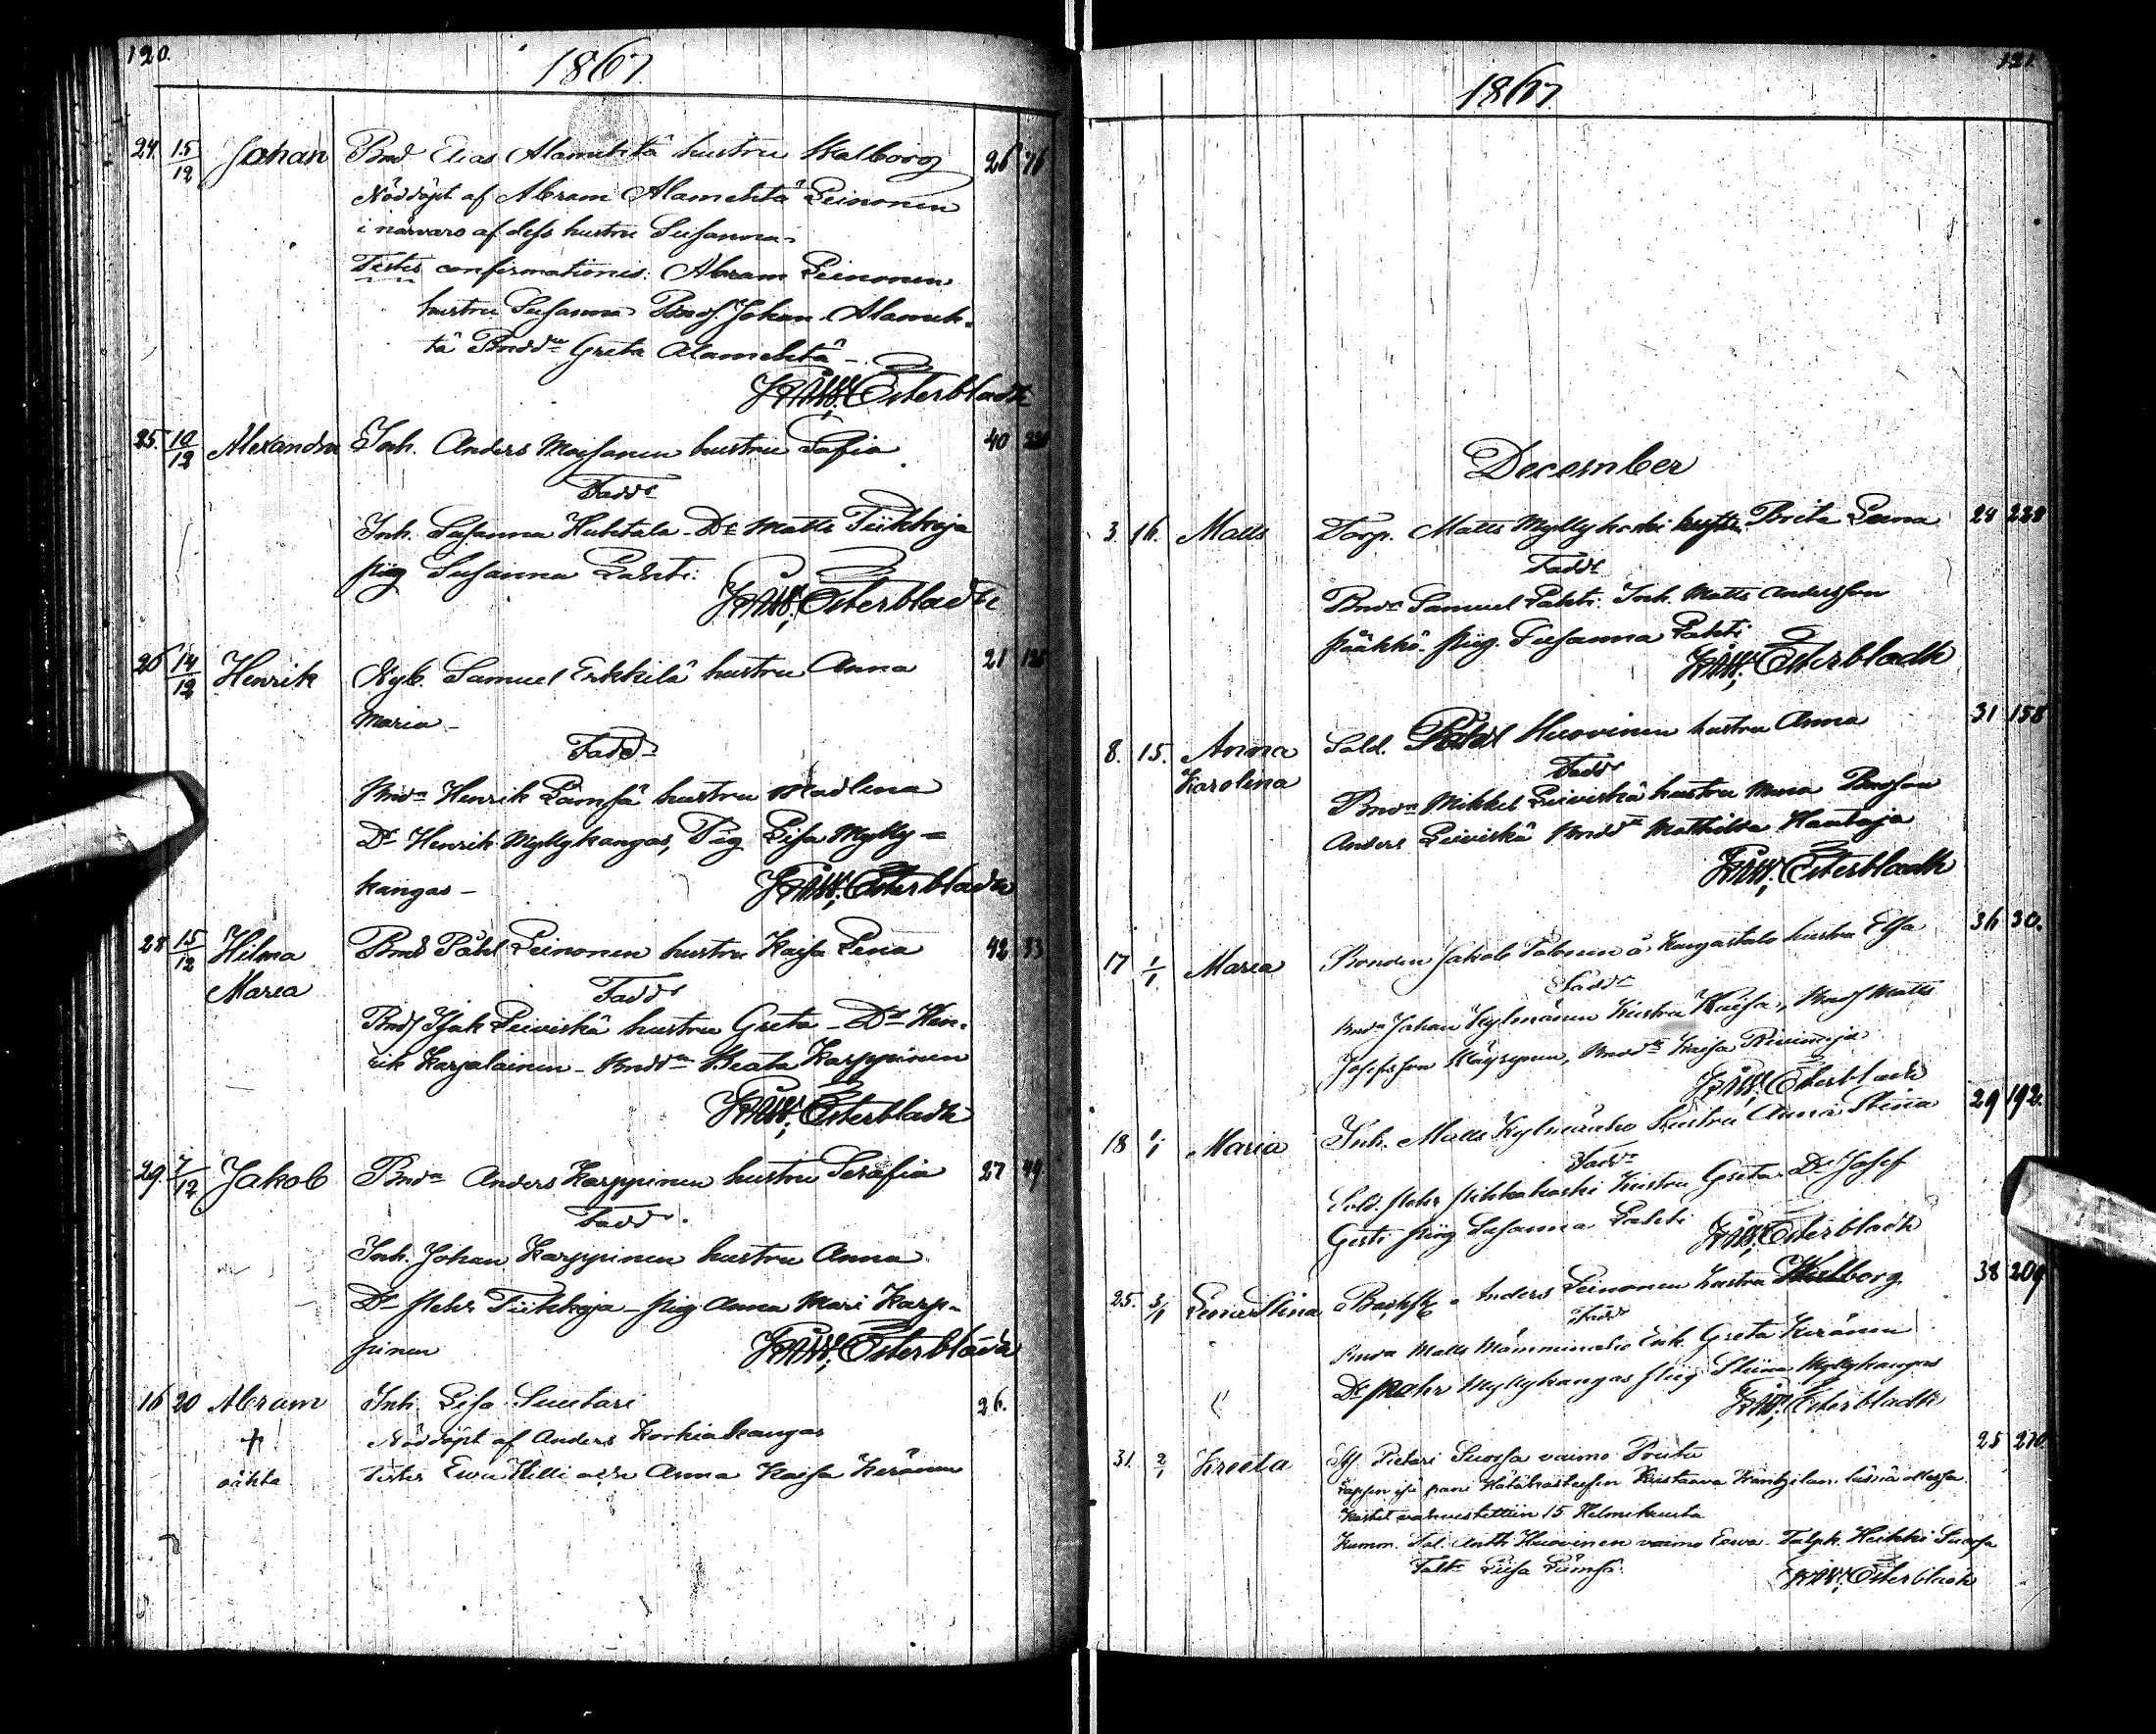 120.
1867
24. 15/12 Johan Bnd Elias Alamehtä hustru Walborg 26 76
Nöddöpt af Abram Alamehtä Leinonen
i närvaro af dess hustru Susanna
Testes confirmationis: Abram Leinonen
hustru Susanna Bnds. Johan Alameh-
tä Bndd:r Greta Alamehtä -
Österbladh
25. 10/12 Alexandra Inh. Anders Moisanen hustru Sofia 40
Fadd:r
Inh. Susanna Huhtala - D:r Matts Tiikkaja
pig Susanna Lahti.
Österbladh
26 14/12 Henrik Nyb. Samuel Erkkilä hustru Anna 21
Maria -
Fadd:r
Bnd:n Henrik Lämsä hustru Madlena
D:r Henrik Myllykangas, Pig Lisa Mylly =
kangas - Österbladh
28 15/12 Hilma Bnd Påhl Leinonen hustru Kaisa Lena 42 33
Maria Fadd:r
Bnds Isak Leiviskä hustru Greta - D:r Hen-
rik Karjalainen - Bndd:r Beata Karppinen
Österbladh
29. 7/12 Jakob Bnd:n Anders Karppinen hustru Serafia 27 49
Fadd:r.
Inh. Johan Karppinen hustru Anna
D:r Pehr Tiikkaja - pig Anna Mari Karp-
pinen Österbladh
16 20 Abram Inh. Lisa Suutari 26.
+ Nöddöpt af Anders Korkiakangas
oäkta Testes Ewa Helli och Anna Kaisa Keränen
121
1867
December
3. 16. Matts Torp. Matts Myllykoski hustru Brita Lena 24 228
Fadd:r
Bnd:n Samuel Lahti. Inh. Matts Andersson
Pääkkö. pig. Susanna Lahti
Österbladh
8. 15. Anna Sold. Påhl Huovinen hustru Anna 31 158
Karolina Fadd:r
Bnd:n Mikkel Leiviskä hustru Maria Bndson
Anders Leiviskä Bndd:r Mathilda Haataja
Österbladh
17 1/1 Maria Bonden Jakob Tolonen å Kangastalo hustru Elsa 36 30.
Fadd:r
Bnd:n Johan Kylmänen hustru Kaisa, Bnds Matts
Josefsson Väyrynen, Bndd:r Kaisa
Österbladh
18 1/1 Maria Inh. Matts Kylmänaho hustru Anna Stina 29 192.
Fadd:r
Sold. Pehr Pikkakoski hustru Greta D:r Josef
Gisti pig Susanna Lahti Österbladh
25. 3/1 Lena Stina Anders Leinonen hustru Walborg 38 209
Fadd:r
Bnd:n Matts Mämminaho Enk. Greta Keränen
D:r Pehr Myllykangas pig Stiina Myllykangas
Österbladh
31. 2/1 Kreeta Pietari Suorsa vaimo Priita 25 270.
Lapsen isä pani Hätäkasteesen Kustaava läsnä ollessa.
Kaste vahvistettiin 15 Helmikuuta
Kumm. Tal. Antti Huovinen vaimo Eeva. Talpk. Heikki Suorsa
Talt:r Liisa Lämsä. Österbladh